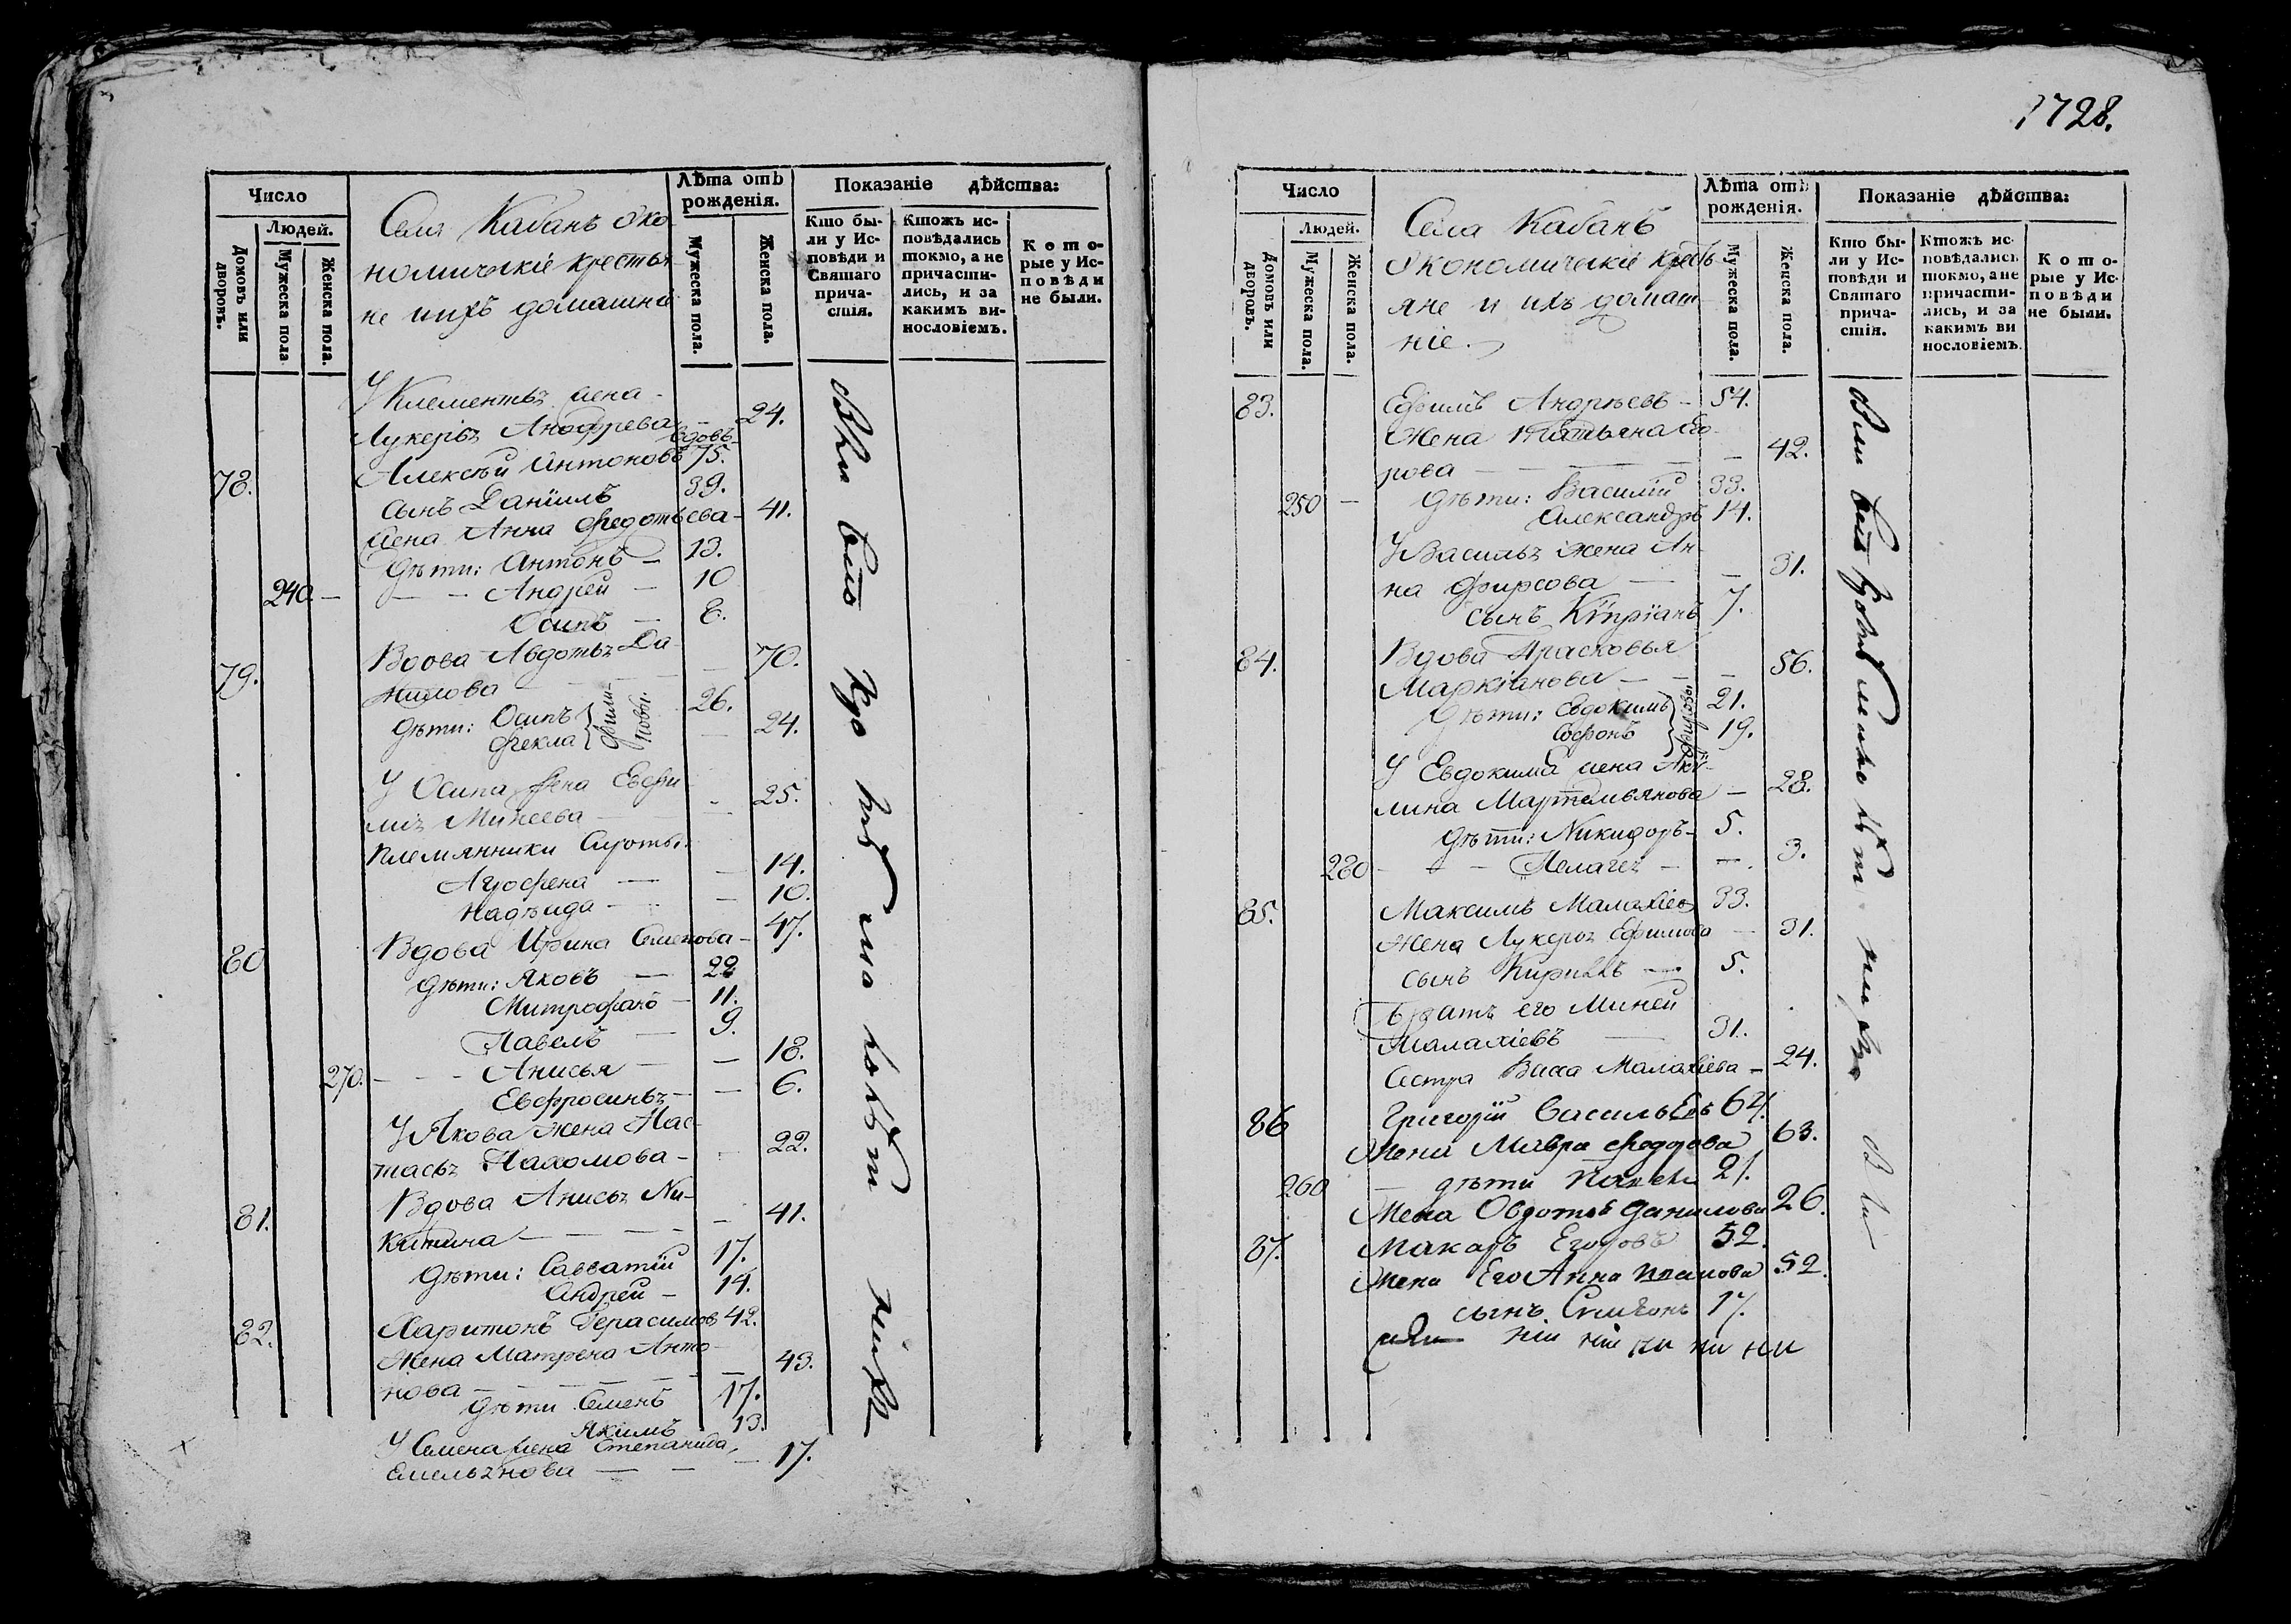 Число
Людей.
Домовъ или дворовъ.
Мужеска пола
Женска пола.
Села Кабанъ Эко-
номическіе крестья-
не и ихъ домашніе
Лѣта отъ рожденія.
Мужеска пола.
Женска пола.
Показаніе дѣйства:
Кто бы-
ли у Ис-
повѣди и
Святаго
прича-
стія.
Ктожъ ис-
повѣдались
токмо, а не
причасти-
лись, и за
какимъ ви-
нословіемъ.
Кото-
рые у Ис-
повѣди
не были.
У Клементья жена
Лукерья Анофрева — 24.
78. Алексѣй Антоновъ вдовъ 75.
сынъ Даніилъ 39.
жена Анна Федотьева — 41.
дѣти: Антонъ — 13.
240 — Андрей — 10
Осипъ — 8.
79. Вдова Авдотья Да-
нилова — 70.
дѣти: Осипъ 26.
Фекла — 24.
У Осипа жена Евфи-
мія Минеева — 25.
Племянники сироты:
Агрофена — 14.
Надѣжда — 10.
80 Вдова Ирина Семенова — 47.
дѣти: Яковъ — 22
Митрофанъ — 11.
Павелъ — 9.
270. — Анисья — 18.
Евфросинья — 6.
У Якова жена Нас-
тасья Пахомова — 22.
81. Вдова Анисья Ни-
китина — 41.
дѣти: Савватій 17.
Андрей — 14.
82. Харитонъ Герасимов 42.
Жена Матрена Анто-
нова — 43.
дѣти Семенъ 17.
Якимъ 13.
У Семена жена Степанида
Емельянова — 17.
1728.
Число
Людей.
Домовъ или дворовъ.
Мужеска пола.
Женска пола.
Села Кабанъ
Экономическіе кресть-
яне и ихъ домаш-
ніе.
Лѣта отъ рожденія.
Мужеска пола.
Женска пола.
Показаніе дѣйства:
Кто бы-
ли у Ис-
повѣди и
Святаго
прича-
стія.
Ктожъ ис-
повѣдались
токмо, а не
причасти-
лись, и за
какимъ ви
нословіемъ.
Кото-
рые у Ис
повѣди
не были.
83. Ефимъ Андреевъ — 54.
Жена Татьяна Его-
рова — 42.
250 — дѣти: Василій 33.
Александръ 14.
У Василья жена Ан-
на Фирсова — 31.
сынъ Кипріанъ 7.
84. Вдова Прасковья
Маркіанова — 56.
дѣти: Евдокимъ 21.
Софонъ 19.
У Евдокима жена Аку-
лина Мартемьянова — 28.
дѣти: Никифоръ — 5.
280 — Пелагея — 3.
85. Максимъ Малахіев 33.
жена Лукерья Ефимова — 31.
сынъ Кирилъ — 5.
Братъ его Миней
Малахіевъ 31.
Сестра Васса Малахіева — 24.
86 Григорій Васильевъ 64.
Жена Мавра Федорова 63.
260 — дѣти 21.
Жена Овдотья Данилова 26.
87. Макаръ Егоровъ 52.
Жена Его Анна 52.
сынъ 17.